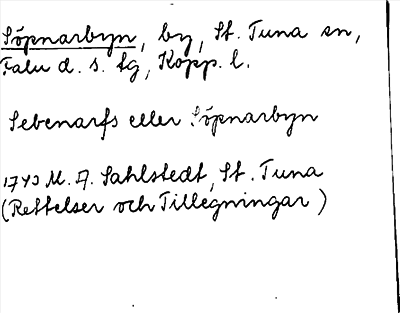 Söpnarbyn, by, St. Tuna sn,
Falu d. s. tg, Kopp. l.
Sebenarfs eller Söpnarbyn
1743 M. A. Sahlstedt, St. Tuna
(Rettelser och Tillegningar)